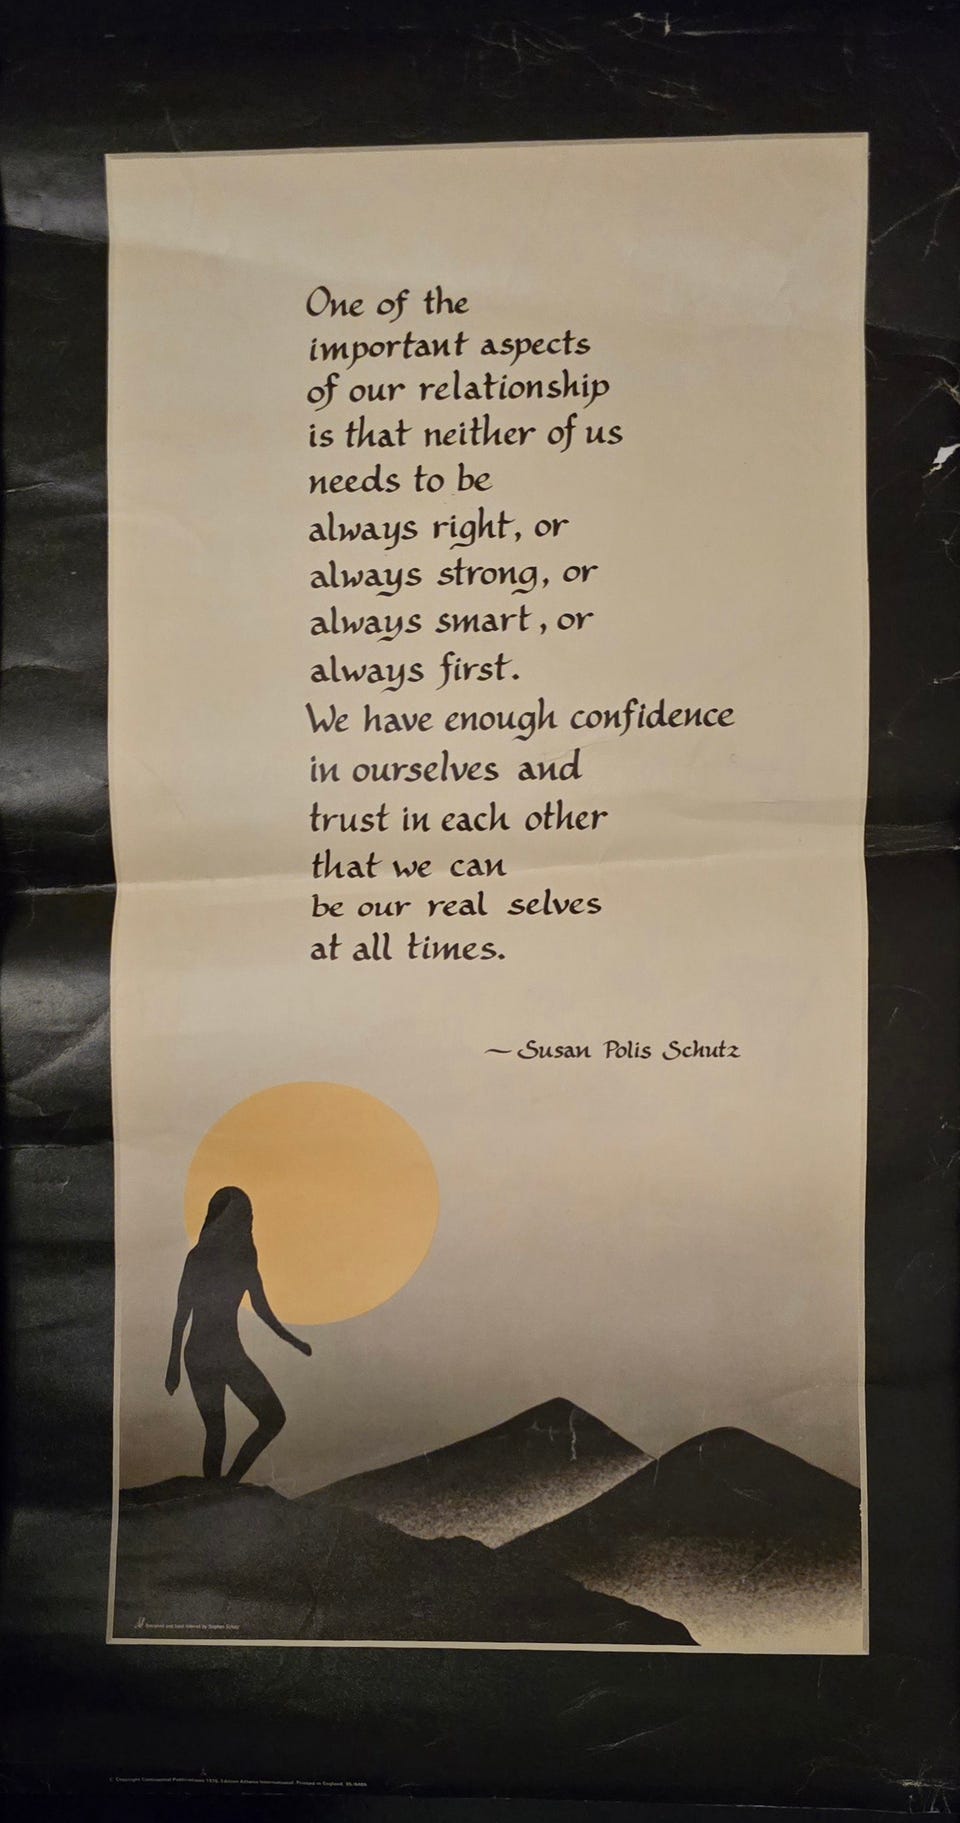 One of the
important aspects
of our relationship
is that neither of us
needs to be
always right, or
always strong, or
always smart, or
always first.
We have enough confidence
in ourselves and
trust in each other
that we can
be our real selves
at all times.
~ Susan Polis Schutz
Designed and hand lettered by Stephen Schutz
© Copyright Continental Publications 1976. Edition Athena International. Printed in England.